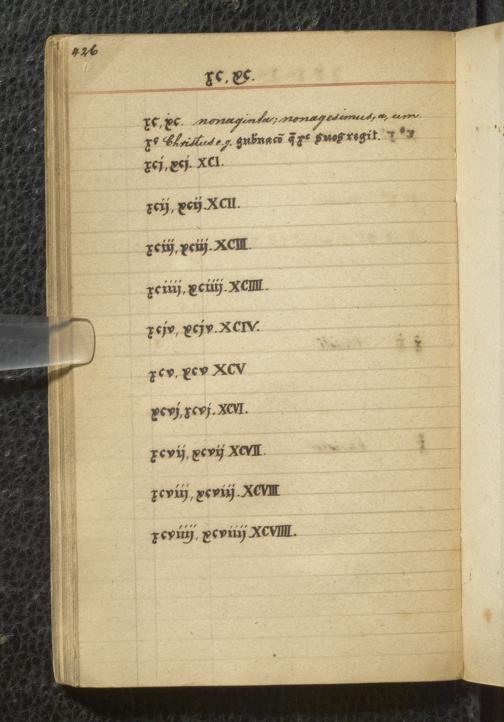 426
xc, xc.
xc, xc. nonaginta; nonagesimus, a, um.
xc Christus e.g. gub̄nacō q̄ xc suos regit.
xcj, xcj. XCI.
xcij, xcij. XCII.
xciij, xciij. XCIII.
xciiij, xciiij. XCIIII.
xcjv, xcjv. XCIV.
xcv, xcv XCV
xcvj, xcvj. XCVI.
xcvij, xcvij XCVII.
xcviij, xcviij. XCVIII
xcviiij, xcviiij XCVIIII.